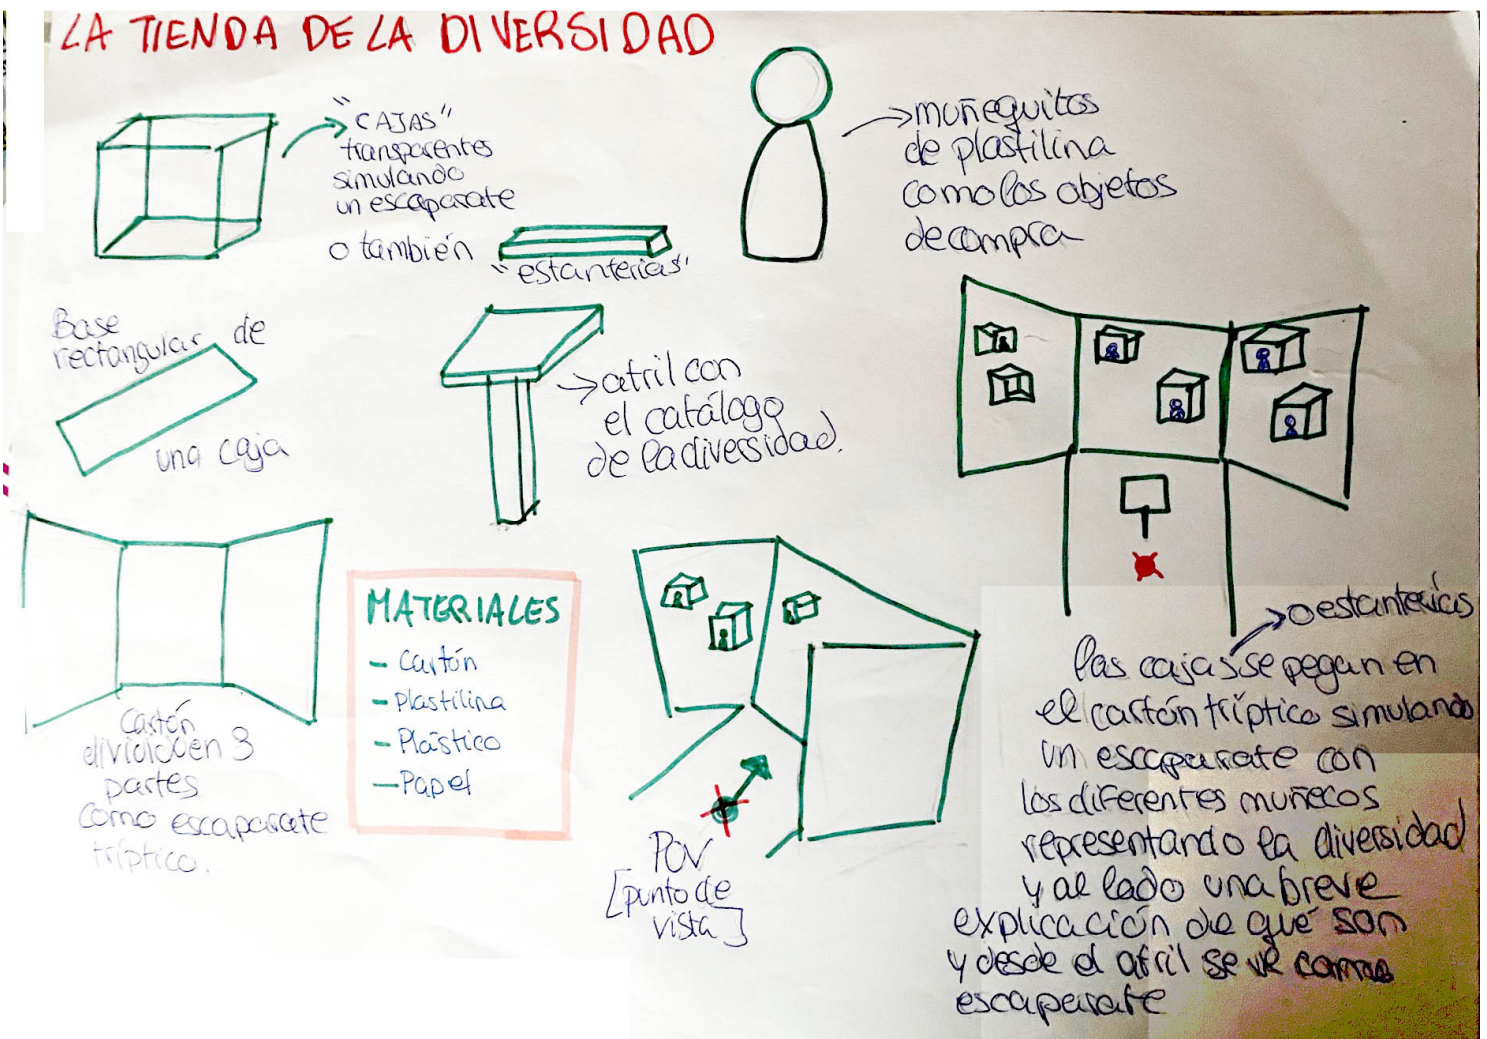 LA TIENDA DE LA DIVERSIDAD
"CAJAS"
transparentes
simulando
un escaparate
o también
"estanterías"
muñequitos
de plastilina
como los objetos
de compra
Base
rectangular de
una caja
atril con
el catálogo
de la diversidad.
Cartón
dividido en 3
partes
como escaparate
tríptico.
MATERIALES
- Cartón
- Plastilina
- Plástico
- Papel
POV
[punto de
vista]
o estanterías
las cajas se pegan en
el cartón tríptico simulando
un escaparate con
los diferentes muñecos
representando la diversidad
y al lado una breve
explicación de qué son
y desde el atril se ve como
escaparate